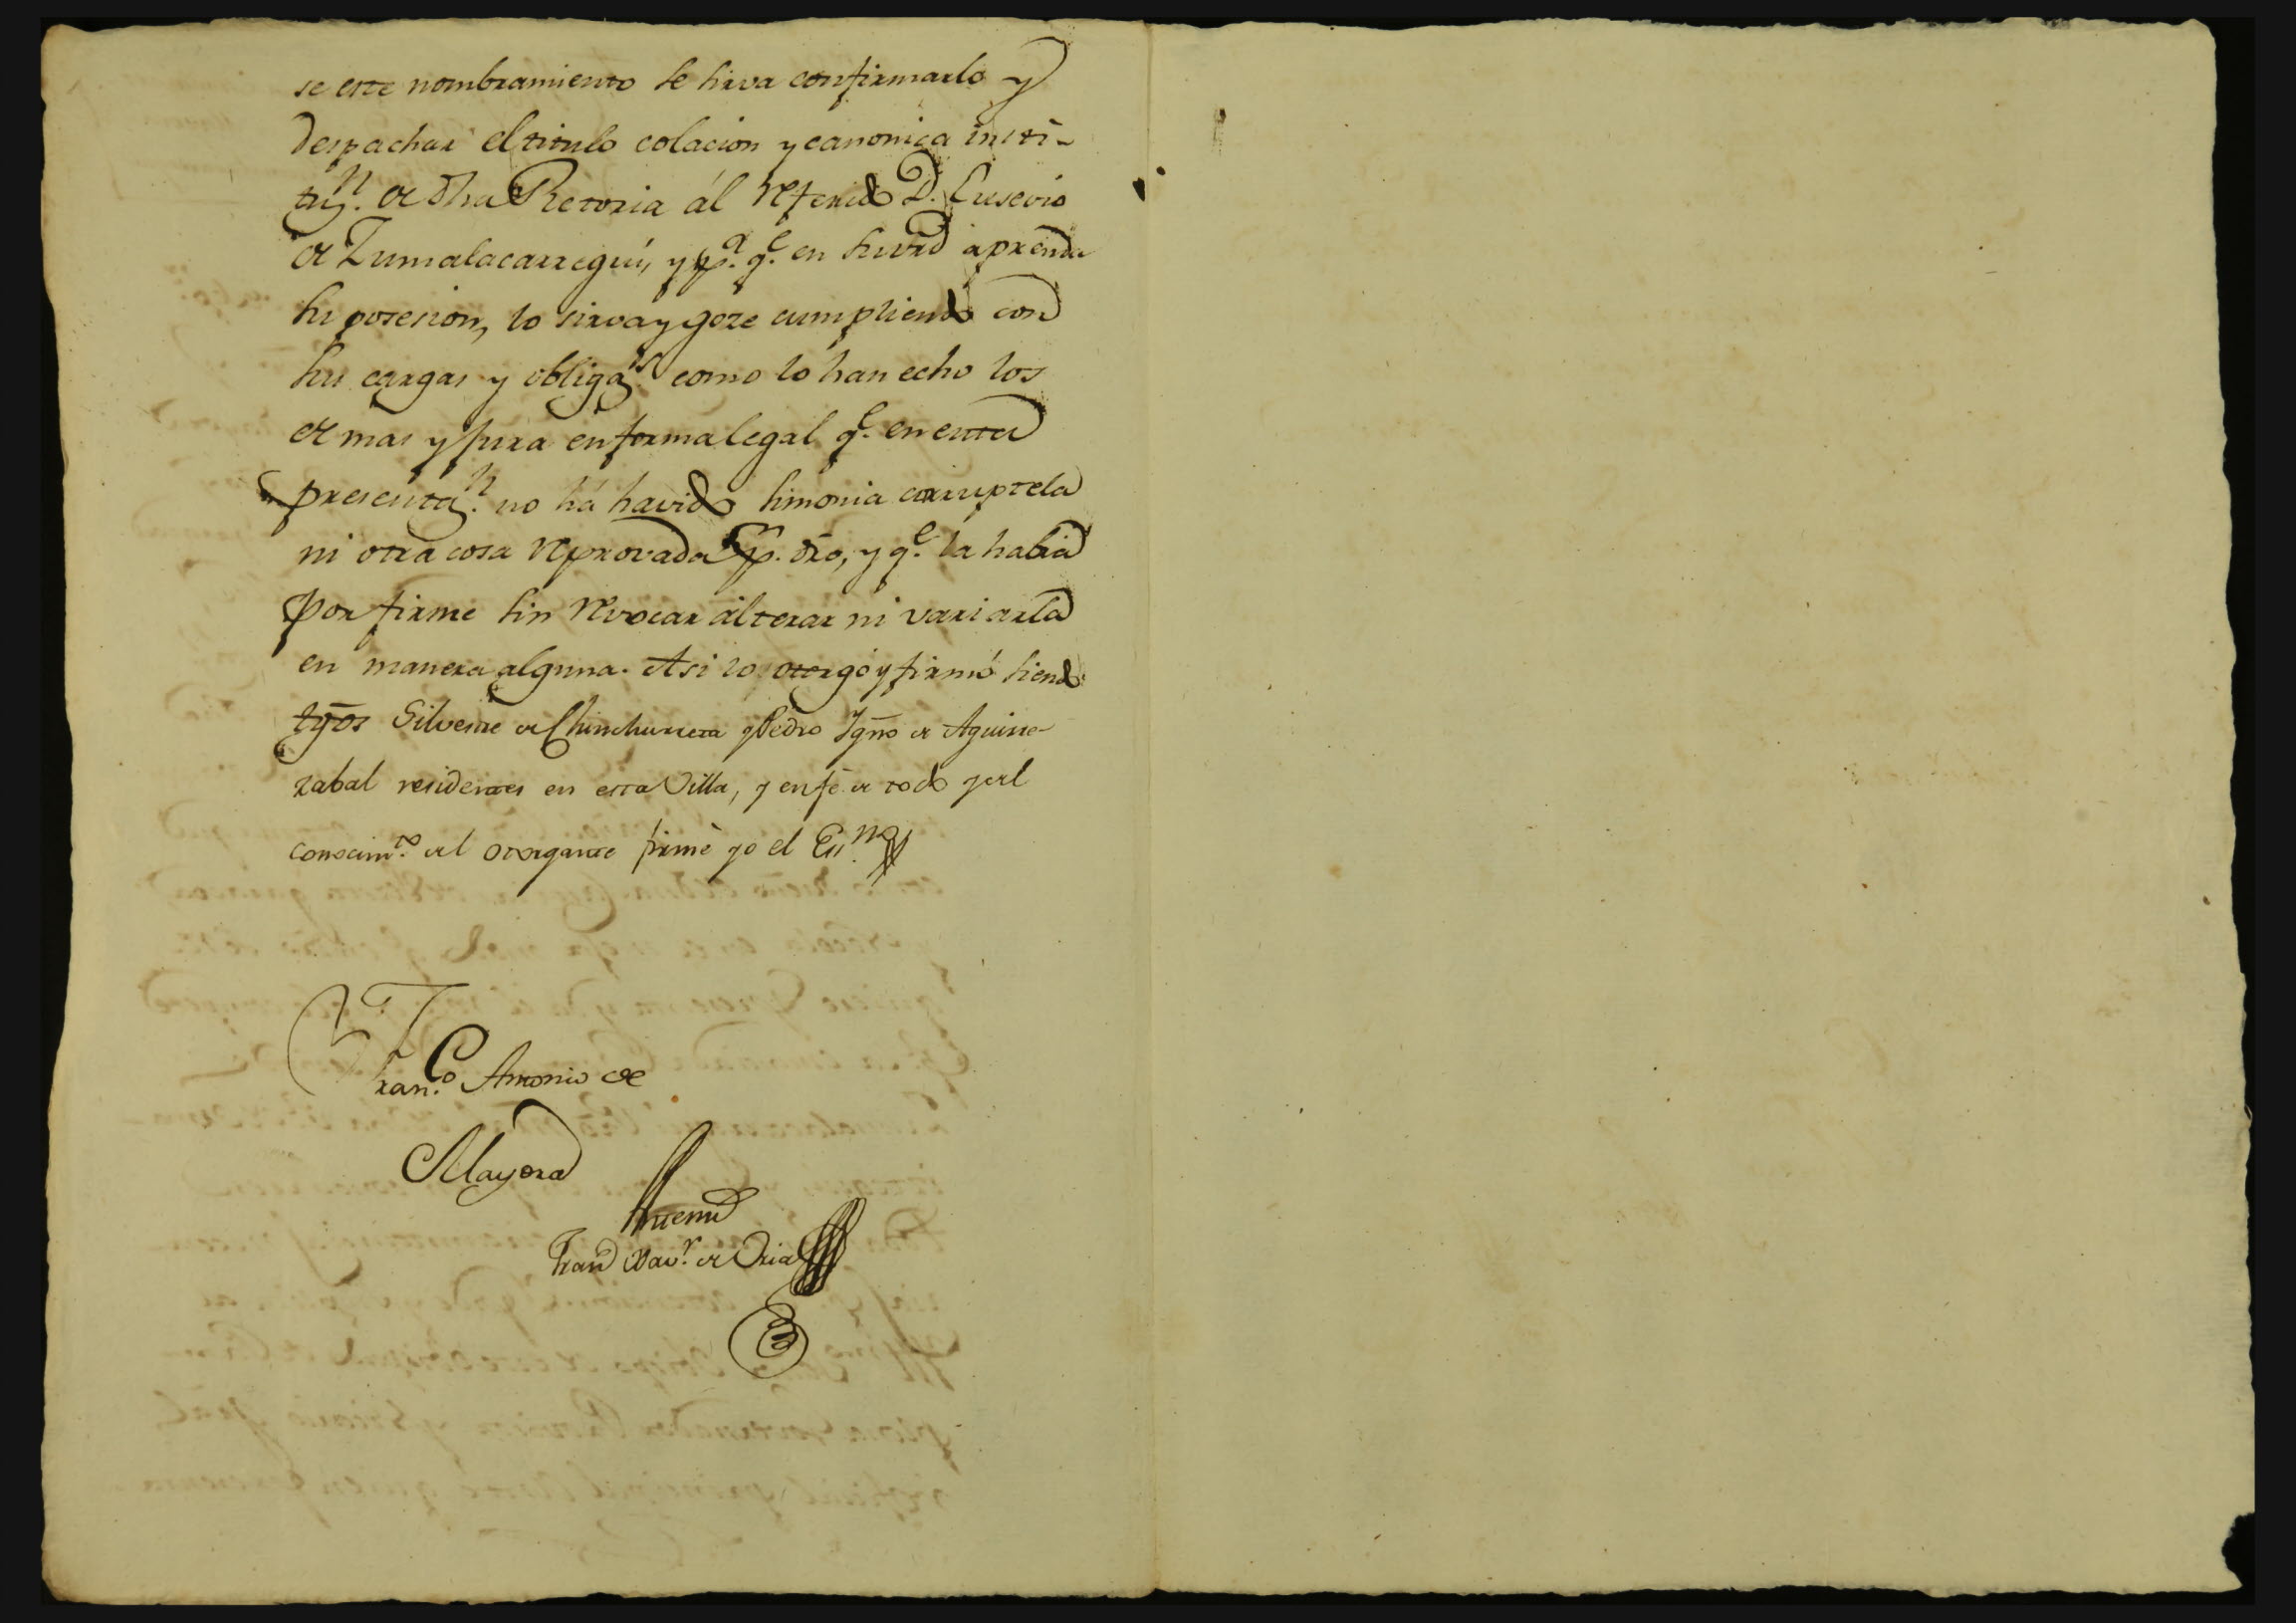 se este nombramiento se sirva confirmarlo y
despachar el titulo colacion y canonica insti-
tuz.n de dha Retoria ál referido D. Eusevio
de Zumalacarregui, y p.a q.e en su vrd aprenda
su posesion, lo sirva y goze cumpliendo con
sus cargas y obligaz.s como lo han echo los
de mas y jura en forma legal q.e en esta
presentaz.n no há havido simonia corruptela
ni otra cosa reprovada p.r dro, y q.e la habia
por firme sin revocar álterar ni variarla
en manera alguna. Asi lo otorgó y firmó siendo
tgos Silvestre de Chinchurreta y Pedro Igno de Aguirre-
zabal residentes en esta Villa, y en fe de todo y del
conocim.to del otorgante firmè yo el Es.no
Fran.co Antonio de
Mayora
Antemi
Fran Xav.r de Oria